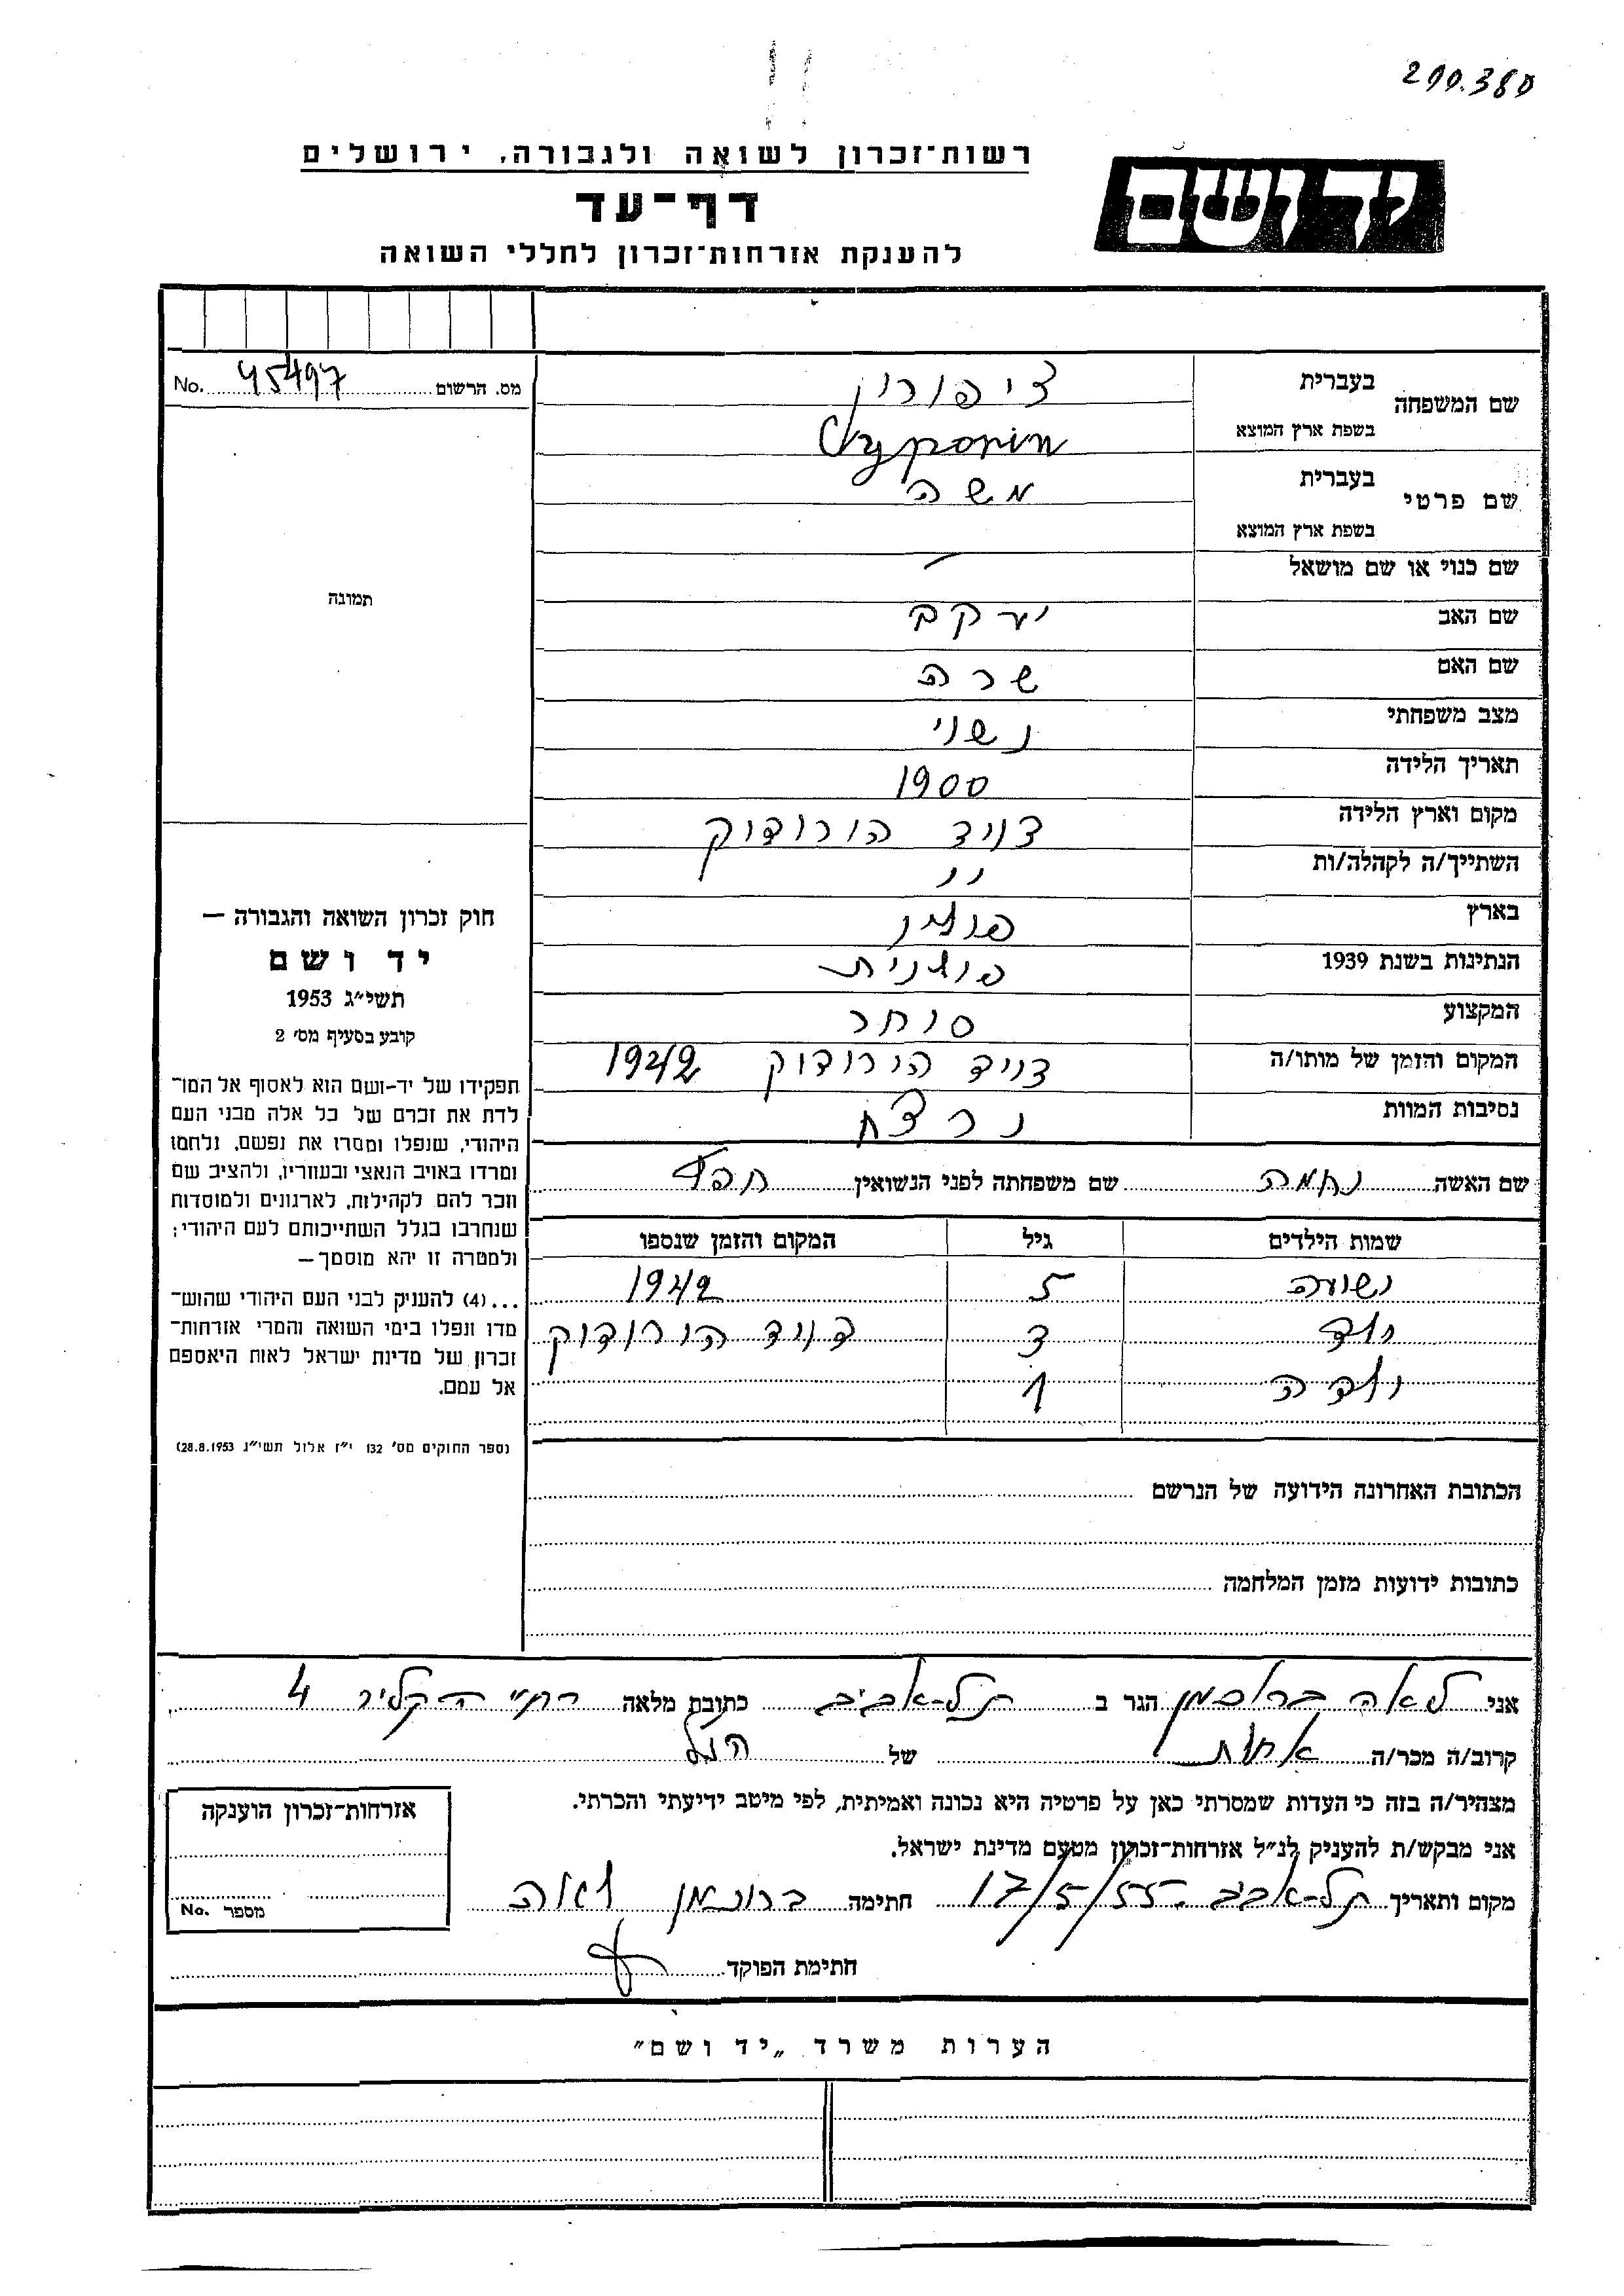 290.380
רשות־זכרון לשואה ולגבורה, ירושלים
יד ושם
דף־עד
להענקת אזרחות־זכרון לחללי השואה
מס. הרשום 45497 No.
שם המשפחה בעברית ציפורין
בשפת ארץ המוצא Cyporin
שם פרטי בעברית משה
בשפת ארץ המוצא
שם כנוי או שם מושאל –
שם האב יעקב
שם האם שרה
מצב משפחתי נשוי
תאריך הלידה 1900
מקום וארץ הלידה דויד הורודוק
השתייך/ה לקהלה/ות "
בארץ פולין
הנתינות בשנת 1939 פולנית
המקצוע סוחר
המקום והזמן של מותו/ה דויד הורודוק 1942
נסיבות המוות נרצח
שם האשה נחמה שם משפחתה לפני הנשואין
שמות הילדים גיל המקום והזמן שנספו
5 1942
3 דויד הורודוק
ילדה 1
הכתובת האחרונה הידועה של הנרשם
כתובות ידועות מזמן המלחמה
תמונה
חוק זכרון השואה והגבורה –
יד ושם
תשי״ג 1953
קובע בסעיף מס׳ 2
תפקידו של יד-ושם הוא לאסוף אל המו־
לדת את זכרם של כל אלה מבני העם
היהודי, שנפלו ומסרו את נפשם, נלחמו
ומרדו באויב הנאצי ובעוזריו, ולהציב שם
וזכר להם לקהילות, לארגונים ולמוסדות
שנחרבו בגלל השתייכותם לעם היהודי;
ולמטרה זו יהא מוסמך –
...(4) להעניק לבני העם היהודי שהוש־
מדו ונפלו בימי השואה והמרי אזרחות־
זכרון של מדינת ישראל לאות היאספם
אל עמם.
(ספר החוקים מס׳ 132 י״ז אלול תשי״ג 28.8.1953)
אני לאה ברוכמן הגר ב תל-אביב כתובת מלאה רח׳ הקליר 4
קרוב/ה מכר/ה אחות של הנ"ל
מצהיר/ה בזה כי העדות שמסרתי כאן על פרטיה היא נכונה ואמיתית, לפי מיטב ידיעתי והכרתי.
אני מבקש/ת להעניק לנ״ל אזרחות־זכרון מטעם מדינת ישראל.
מקום ותאריך תל-אביב 17/5/55 חתימה ברוכמן לאה
חתימת הפוקד
אזרחות־זכרון הוענקה
מספר No.
הערות משרד „יד ושם״